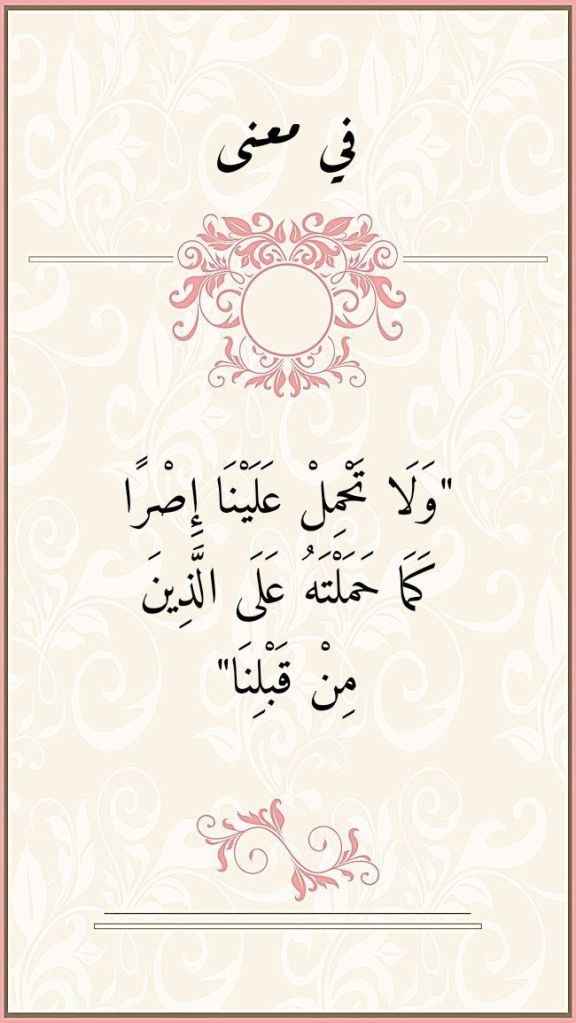 في معنى
"وَلَا تَحْمِلْ عَلَيْنَا إِصْرًا
كَمَا حَمَلْتَهُ عَلَى الَّذِينَ
مِنْ قَبْلِنَا"